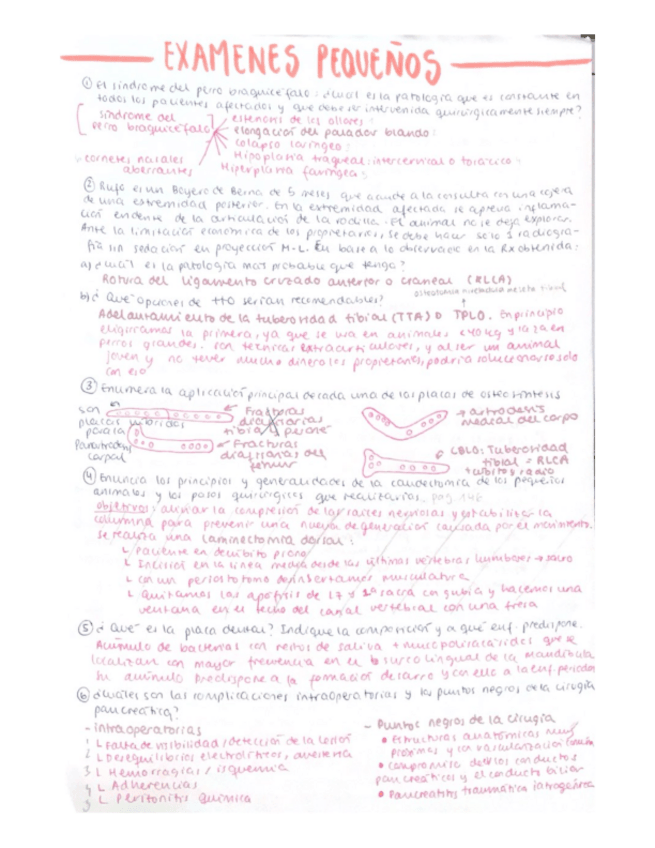 EXAMENES PEQUEÑOS
① El síndrome del perro braquicéfalo: ¿Cuál es la patología que es constante en
todos los pacientes afectados y que debe ser intervenida quirúrgicamente siempre?
síndrome del
perro braquicéfalo
estenosis de los ollares:
elongación del paladar blando:
colapso laríngeo:
Hipoplasia traqueal: intercervical o torácico:
Hiperplasia faríngea:
cornetes nasales
aberrantes
② Rufo es un Boyero de Berna de 5 meses que acude a la consulta con una cojera
de una extremidad posterior. En la extremidad afectada se aprecia inflama-
ción evidente de la articulación de la rodilla. El animal no se deja explorar.
Ante la limitación económica de los propietarios, se debe hacer solo 1 radiogra-
fía sin sedación en proyección M-L. En base a lo observado en la Rx obtenida:
a) ¿Cuál es la patología más probable que tenga?
Rotura del ligamento cruzado anterior o craneal (RLCA)
b) ¿Qué opciones de tto serían recomendables?
osteotomía niveladora meseta tibial
Adelantamiento de la tuberosidad tibial (TTA) o TPLO. En principio
eligiríamos la primera, ya que se usa en animales <40kg y la 2ª en
perros grandes. Con técnicas extraarticulares, y al ser un animal
joven y no tener mucho dinero los propietarios, podría solucionarse solo
con eso
③ Enumera la aplicación principal de cada una de las placas de osteosíntesis
son
placas híbridas
para la
Panartrodesis
carpal
Fracturas
diafisarias
tibia y peroné
Fracturas
diafisarias del
fémur
artrodesis
medial del carpo
Tuberosidad
tibial = RLCA
cúbito y radio
④ Enuncia los principios y generalidades de la caudectomía de los pequeños
animales y los pasos quirúrgicos que realizarías. pag 146
objetivos: aliviar la compresión de las raíces nerviosas y estabilizar la
columna para prevenir una nueva degeneración causada por el movimiento.
Se realiza una laminectomía dorsal:
└ Paciente en decúbito prono
└ Incisión en la línea media desde las últimas vértebras lumbares → sacro
└ con un periostotomo desinsertamos musculatura
└ Quitamos las apófisis de L7 y 1ª sacra con gubia y hacemos una
ventana en el techo del canal vertebral con una fresa
⑤ ¿Qué es la placa dental? Indique la composición y a qué enf. predispone.
Acúmulo de bacterias con restos de saliva + mucopolisacáridos que se
localizan con mayor frecuencia en el surco lingual de la mandíbula
Su acúmulo predispone a la formación de sarro y con ello a la enf. periodon
⑥ ¿Cuáles son las complicaciones intraoperatorias y los puntos negros de la cirugía
pancreática?
- intraoperatorias
1 └ Falta de visibilidad/detección de la lesión
2 └ Desequilibrios electrolíticos, anestesia
3 └ Hemorragias/isquemia
4 └ Adherencias
5 └ Peritonitis química
- Puntos negros de la cirugía
• Estructuras anatómicas muy
próximas y con vascularización común
• Compromiso de los conductos
pancreáticos y el conducto biliar
• Pancreatitis traumática iatrogénica